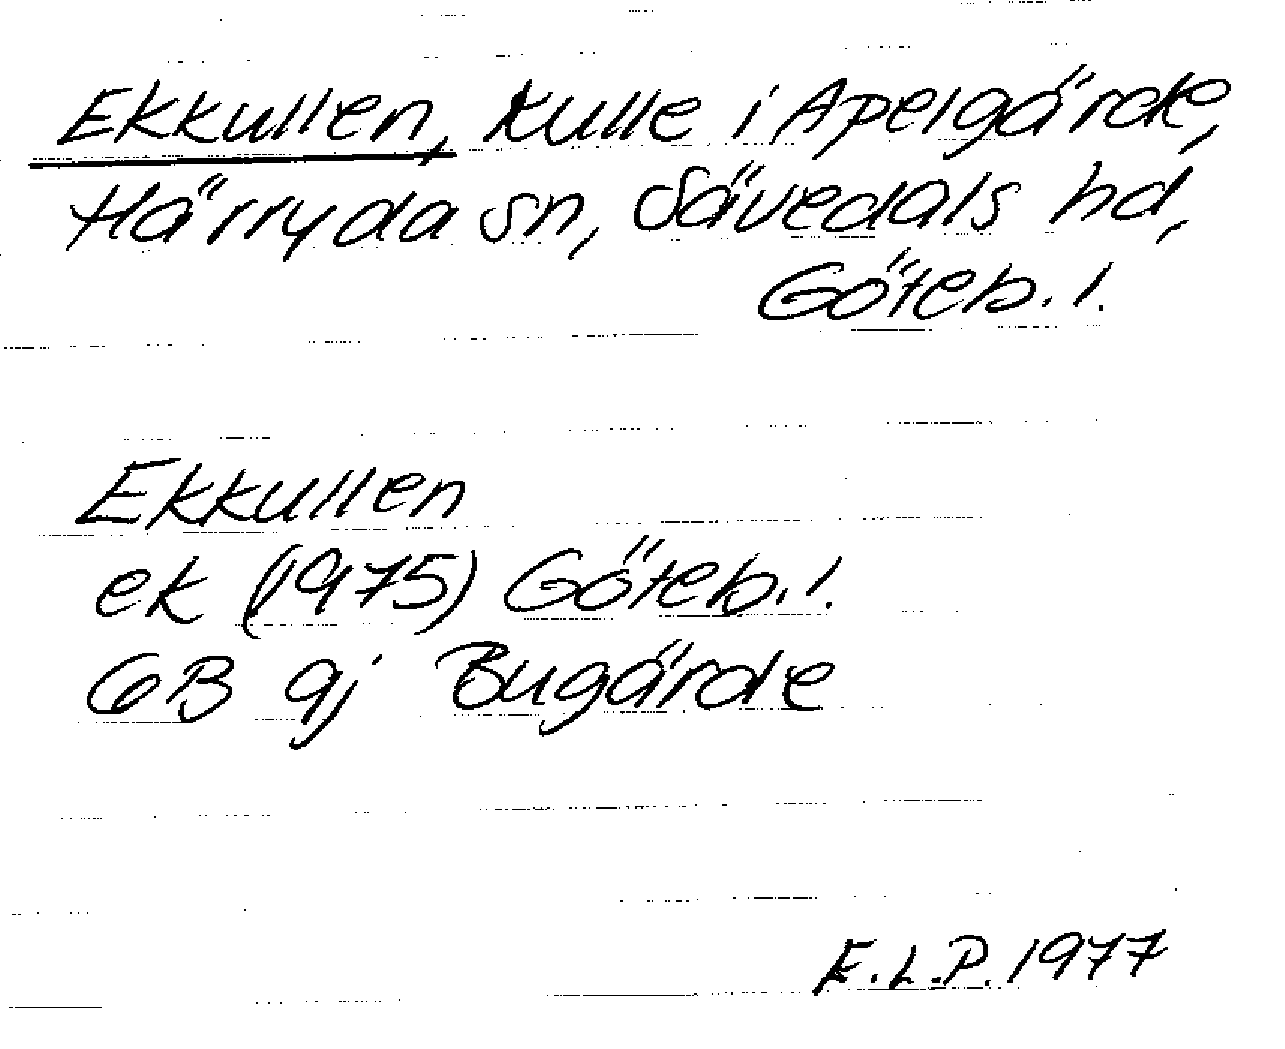 Ekkullen, kulle i Apelgärde,
Härryda sn, Sävedals hd,
Göteb. l.
Ekkullen
ek (1975) Göteb. l.
6B 9j Bugärde
E.L.P. 1977